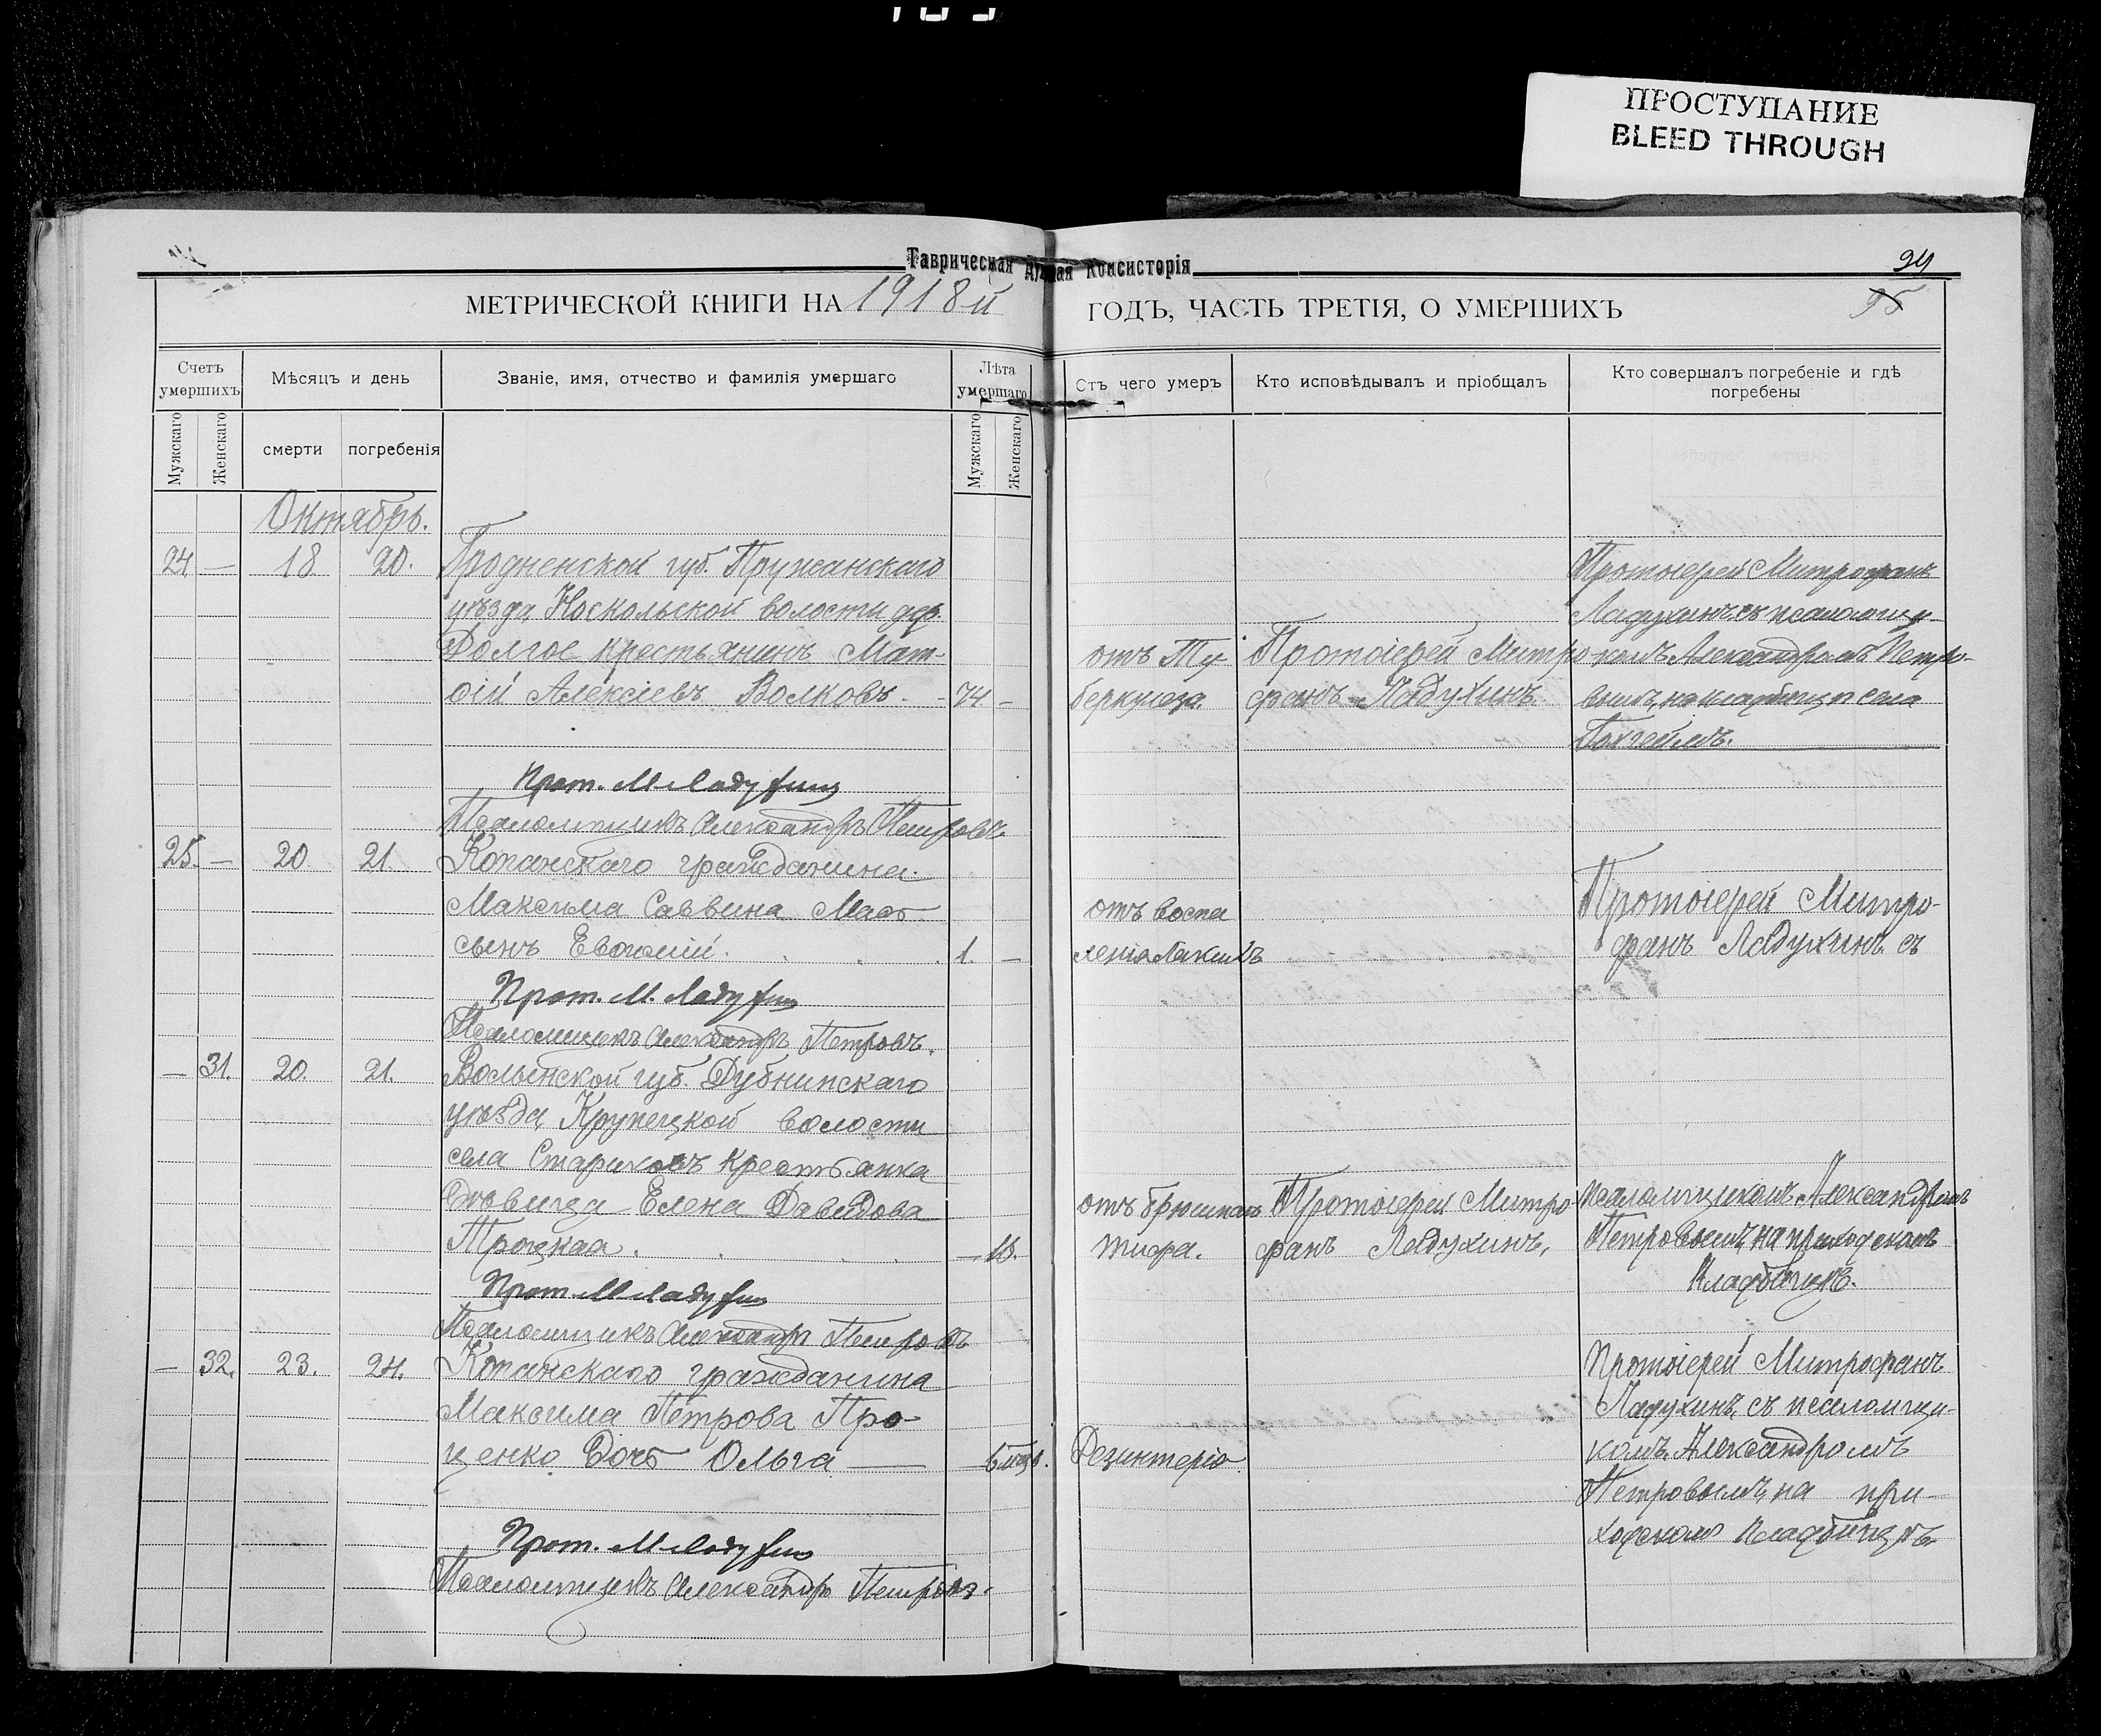 ПРОСТУПАНИЕ
BLEED THROUGH
Таврическая Консисторія
94
95
МЕТРИЧЕСКОЙ КНИГИ НА 1918й ГОДЪ, ЧАСТЬ ТРЕТІЯ, О УМЕРШИХЪ
Счетъ умершихъ
Мѣсяцъ и день
Званіе, имя, отчество и фамилія умершаго
Лѣта умершаго
Отъ чего умеръ
Кто исповѣдывалъ и пріобщалъ
Кто совершалъ погребеніе и гдѣ погребены
Мужскаго
Женскаго
смерти
погребенія
Мужскаго
Женскаго
Октябрь.
24. — 18 20.
Гродненской губ. Пружанскаго
уѣзда, Носкольской волости дер.
Долгое крестьянинъ Мат-
ѳій Алексіевъ Волковъ. - 74. -
отъ Ту-
беркулеза.
Протоіерей Митро-
фанъ Ладухинъ.
Протоіерей Митрофанъ
Ладухинъ съ псаломщи-
комъ Александромъ Петро-
вымъ, на кладбищѣ села
Прот. М. Ладухинъ
Псаломщикъ Александръ Петровъ
25. — 20. 21.
Копанскаго гражданина
Максима Саввина
сынъ Евѳимій. 1. -
отъ воспа
ленія Легкихъ
Протоіерей Митро-
фанъ Ладухинъ съ
Прот. М. Ладухинъ
Псаломщикъ Александръ Петровъ.
— 31. 20. 21.
Волынской губ. Дубнинскаго
уѣзда, Крупецкой волости
села Стариковъ крестьянка
дѣвица Елена Давидова
Троцкая.
отъ брюшнаго
тифа.
Протоіерей Митро-
фанъ Ладухинъ,
псаломщикомъ Александромъ
Петровымъ, на приходскомъ
кладбищѣ.
Прот. М. Ладухинъ
Псаломщикъ Александръ Петровъ
— 32. 23. 24.
Копанскаго гражданина
Максима Петрова Про-
ценко дочь Ольга —
Дезинтерія
Протоіерей Митрофанъ
Ладухинъ, съ псаломщи-
комъ Александромъ
Петровымъ, на при-
ходскомъ кладбищѣ
Прот. М. Ладухинъ
Псаломщикъ Александръ Петровъ.